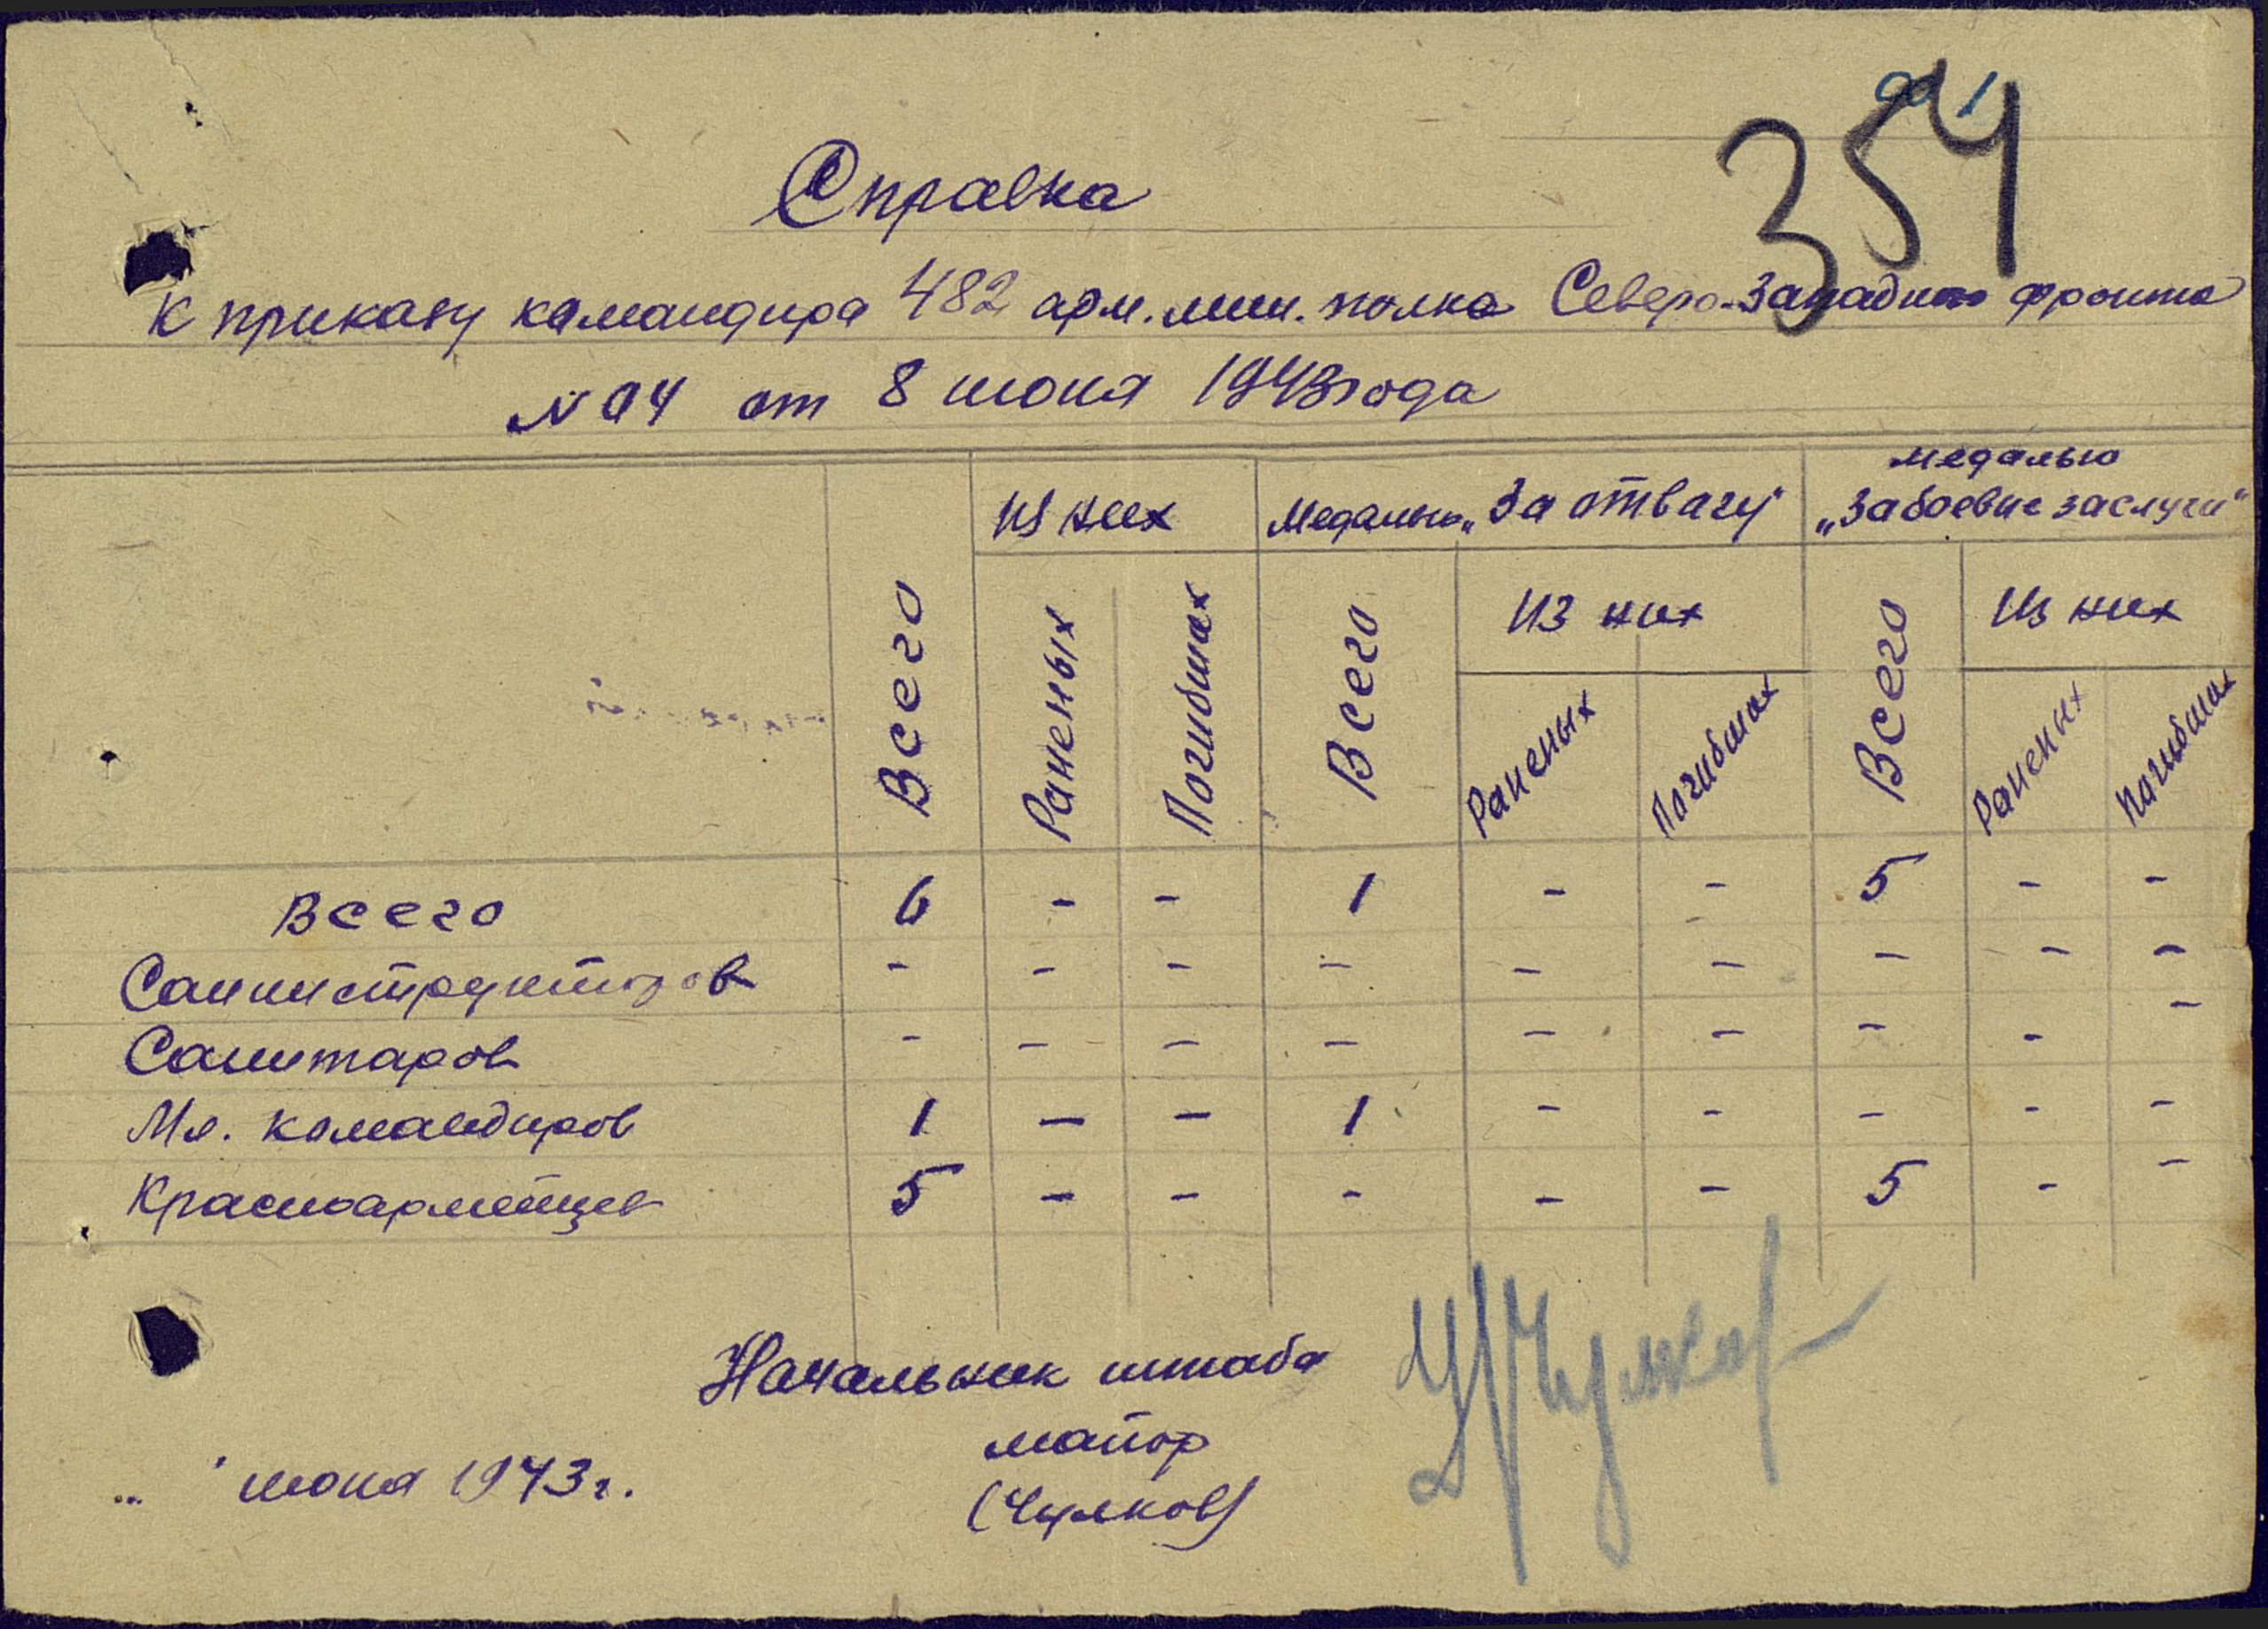 354
Справка
К приказу командира 482 арм. мин. полка Северо-Западного фронта
№ 04 от 8 июня 1943 года
Всего | из них | Медалью „За отвагу" | медалью „За боевые заслуги"
Раненых | Погибших | Всего | из них | Всего | из них
Раненых | Погибших | Раненых | Погибших
Всего 6 - - 1 - - 5 - -
Санинструкторов - - - - - - - - -
Санитаров - - - - - - - - -
Мл. командиров 1 - - 1 - - - - -
Красноармейцев 5 - - - - - 5 - -
Начальник штаба
майор
(Чулков)
„ " июня 1943 г.